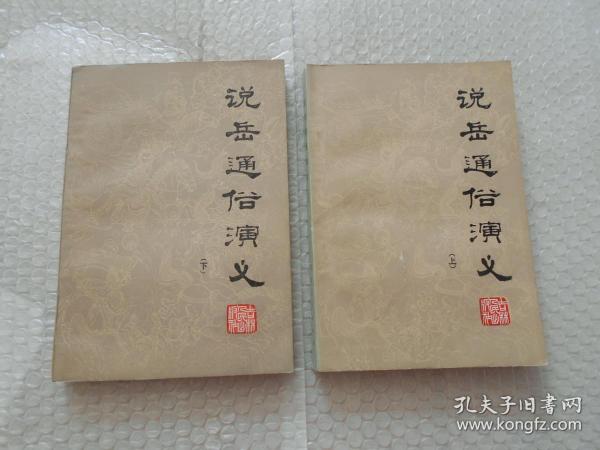 说岳通俗演义
(下)
说岳通俗演义
(上)
孔夫子旧书网
www.kongfz.com